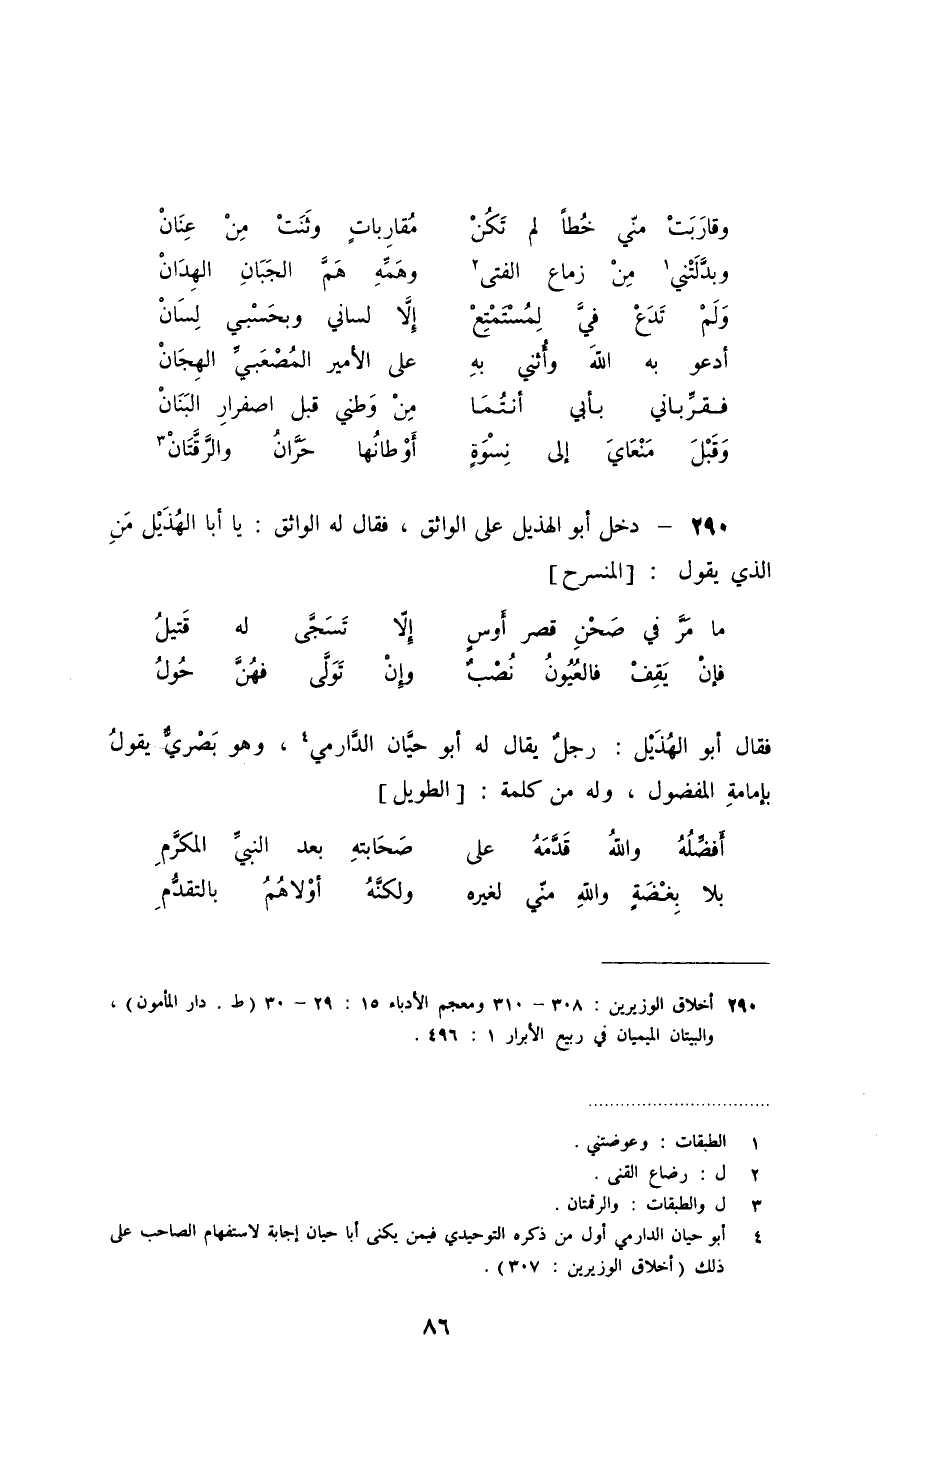 وقارَبَتْ منّي خُطاً لم تَكُنْ مُقارِباتٍ وثَنَتْ مِنْ عِنَانْ
وبدَّلَتْني١ مِنْ زماع الفتى٢ وهَمِّهِ هَمَّ الجَبَانِ الهِدَانْ
وَلَمْ تَدَعْ فيَّ لِمُسْتَمْتِعْ إلَّا لساني وبحَسْبي لِسَانْ
أدعو به اللهَ وأُثني بهِ على الأمير المُصْعَبيِّ الهِجَانْ
فقرِّباني بأبي أنتُمَا مِنْ وَطني قبل اصفرارِ البَنَانْ
وَقَبْلَ مَنْعَايَ إلى نِسْوَةٍ أوْطانُها حَرَّانُ والرَّقَّتَانْ٣
٢٩٠ – دخل أبو الهذيل على الواثق ، فقال له الواثق : يا أبا الهُذَيْل مَنِ
الذي يقول : [المنسرح]
ما مَرَّ في صَحْنِ قصر أَوسٍ إلّا تَسَجَّى له قَتيلُ
فإنْ يَقِفْ فالعُيُونُ نُصْبٌ وإنْ تَوَلَّى فهُنَّ حُولُ
فقال أبو الهُذَيْل : رجلٌ يقال له أبو حيَّان الدَّارمي٤ ، وهو بَصْريٌّ يقولُ
بإمامةِ المفضول ، وله من كلمة : [الطويل]
أَفضِّلُهُ واللهُ قَدَّمَهُ على صَحَابتهِ بعد النبيِّ المكرَّمِ
بلا بِغْضَةٍ واللهِ منّي لغيره ولكنَّهُ أوْلاهُمُ بالتقدُّمِ
٢٩٠ أخلاق الوزيرين : ٣٠٨ – ٣١٠ ومعجم الأدباء ١٥ : ٢٩ – ٣٠ (ط . دار المأمون) ،
والبيتان الميميان في ربيع الأبرار ١ : ٤٩٦ .
١ الطبقات : وعوضتني .
٢ ل : رضاع القنى .
٣ ل والطبقات : والرقتان .
٤ أبو حيان الدارمي أول من ذكره التوحيدي فيمن يكنى أبا حيان إجابة لاستفهام الصاحب على
ذلك (أخلاق الوزيرين : ٣٠٧) .
٨٦